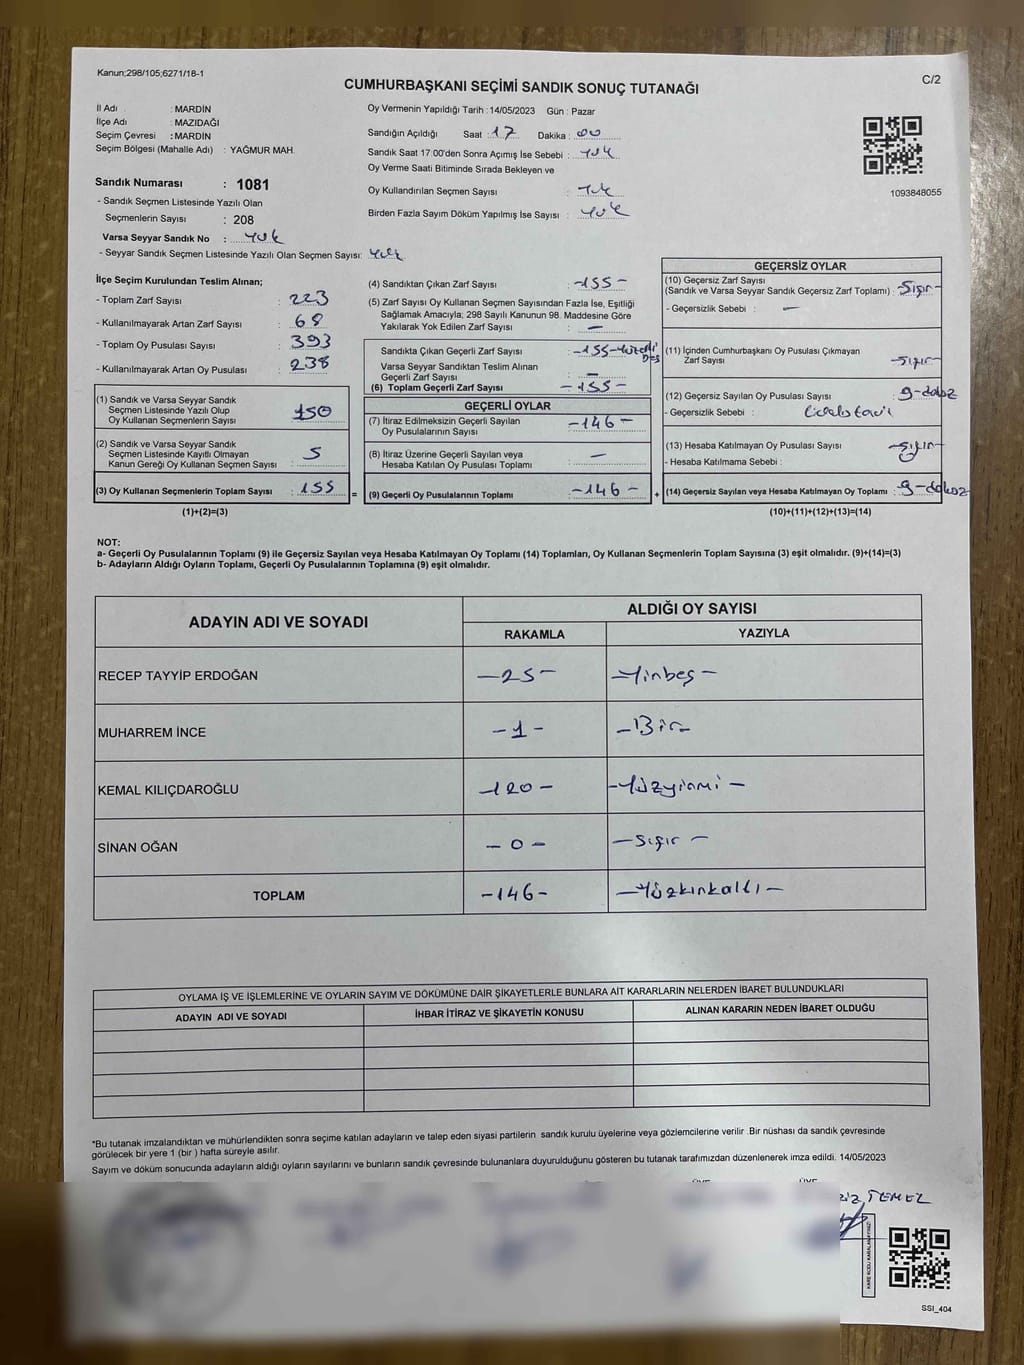 Kanun;298/105;6271/18-1
C/2
CUMHURBAŞKANI SEÇİMİ SANDIK SONUÇ TUTANAĞI
İl Adı : MARDİN
İlçe Adı : MAZIDAĞI
Seçim Çevresi : MARDİN
Seçim Bölgesi (Mahalle Adı) : YAĞMUR MAH.
Sandık Numarası : 1081
- Sandık Seçmen Listesinde Yazılı Olan
Seçmenlerin Sayısı : 208
Varsa Seyyar Sandık No : yok
- Seyyar Sandık Seçmen Listesinde Yazılı Olan Seçmen Sayısı: yok
Oy Vermenin Yapıldığı Tarih : 14/05/2023 Gün : Pazar
Sandığın Açıldığı Saat : 17 Dakika : 00
Sandık Saat 17:00'den Sonra Açımış İse Sebebi : yok
Oy Verme Saati Bitiminde Sırada Bekleyen ve
Oy Kullandırılan Seçmen Sayısı : yok
Birden Fazla Sayım Döküm Yapılmış İse Sayısı : yok
1093848055
İlçe Seçim Kurulundan Teslim Alınan;
- Toplam Zarf Sayısı : 223
- Kullanılmayarak Artan Zarf Sayısı : 68
- Toplam Oy Pusulası Sayısı : 393
- Kullanılmayarak Artan Oy Pusulası : 238
(1) Sandık ve Varsa Seyyar Sandık
Seçmen Listesinde Yazılı Olup
Oy Kullanan Seçmenlerin Sayısı : 150
(2) Sandık ve Varsa Seyyar Sandık
Seçmen Listesinde Kayıtlı Olmayan
Kanun Gereği Oy Kullanan Seçmen Sayısı : 5
(3) Oy Kullanan Seçmenlerin Toplam Sayısı : 155 =
(1)+(2)=(3)
(4) Sandıktan Çıkan Zarf Sayısı : -155-
(5) Zarf Sayısı Oy Kullanan Seçmen Sayısından Fazla İse, Eşitliği
Sağlamak Amacıyla; 298 Sayılı Kanunun 98. Maddesine Göre
Yakılarak Yok Edilen Zarf Sayısı : —
Sandıkta Çıkan Geçerli Zarf Sayısı : -155-
Varsa Seyyar Sandıktan Teslim Alınan
Geçerli Zarf Sayısı : —
(6) Toplam Geçerli Zarf Sayısı : -155-
GEÇERLİ OYLAR
(7) İtiraz Edilmeksizin Geçerli Sayılan
Oy Pusulalarının Sayısı : -146-
(8) İtiraz Üzerine Geçerli Sayılan veya
Hesaba Katılan Oy Pusulası Toplamı : —
(9) Geçerli Oy Pusulalarının Toplamı : -146- +
GEÇERSİZ OYLAR
(10) Geçersiz Zarf Sayısı
(Sandık ve Varsa Seyyar Sandık Geçersiz Zarf Toplamı) : -Sıfır-
- Geçersizlik Sebebi : —
(11) İçinden Cumhurbaşkanı Oy Pusulası Çıkmayan
Zarf Sayısı : -Sıfır-
(12) Geçersiz Sayılan Oy Pusulası Sayısı : 9-dokuz
- Geçersizlik Sebebi :
(13) Hesaba Katılmayan Oy Pusulası Sayısı : -Sıfır-
- Hesaba Katılmama Sebebi :
(14) Geçersiz Sayılan veya Hesaba Katılmayan Oy Toplamı : 9-dokuz
(10)+(11)+(12)+(13)=(14)
NOT:
a- Geçerli Oy Pusulalarının Toplamı (9) ile Geçersiz Sayılan veya Hesaba Katılmayan Oy Toplamı (14) Toplamları, Oy Kullanan Seçmenlerin Toplam Sayısına (3) eşit olmalıdır. (9)+(14)=(3)
b- Adayların Aldığı Oyların Toplamı, Geçerli Oy Pusulalarının Toplamına (9) eşit olmalıdır.
ADAYIN ADI VE SOYADI ALDIĞI OY SAYISI
RAKAMLA YAZIYLA
RECEP TAYYİP ERDOĞAN -25- -Yirmbeş-
MUHARREM İNCE -1- -Bir-
KEMAL KILIÇDAROĞLU -120- -Yüzyirmi-
SİNAN OĞAN -0- -Sıfır-
TOPLAM -146- -Yüzkırkaltı-
OYLAMA İŞ VE İŞLEMLERİNE VE OYLARIN SAYIM VE DÖKÜMÜNE DAİR ŞİKAYETLERLE BUNLARA AİT KARARLARIN NELERDEN İBARET BULUNDUKLARI
ADAYIN ADI VE SOYADI İHBAR İTİRAZ VE ŞİKAYETİN KONUSU ALINAN KARARIN NEDEN İBARET OLDUĞU
*Bu tutanak imzalandıktan ve mühürlendikten sonra seçime katılan adayların ve talep eden siyasi partilerin sandık kurulu üyelerine veya gözlemcilerine verilir .Bir nüshası da sandık çevresinde
görülecek bir yere 1 (bir ) hafta süreyle asılır.
Sayım ve döküm sonucunda adayların aldığı oyların sayılarını ve bunların sandık çevresinde bulunanlara duyurulduğunu gösteren bu tutanak tarafımızdan düzenlenerek imza edildi. 14/05/2023
TEMEL
KARE KODU KARALAMAYINIZ!
SSI_404